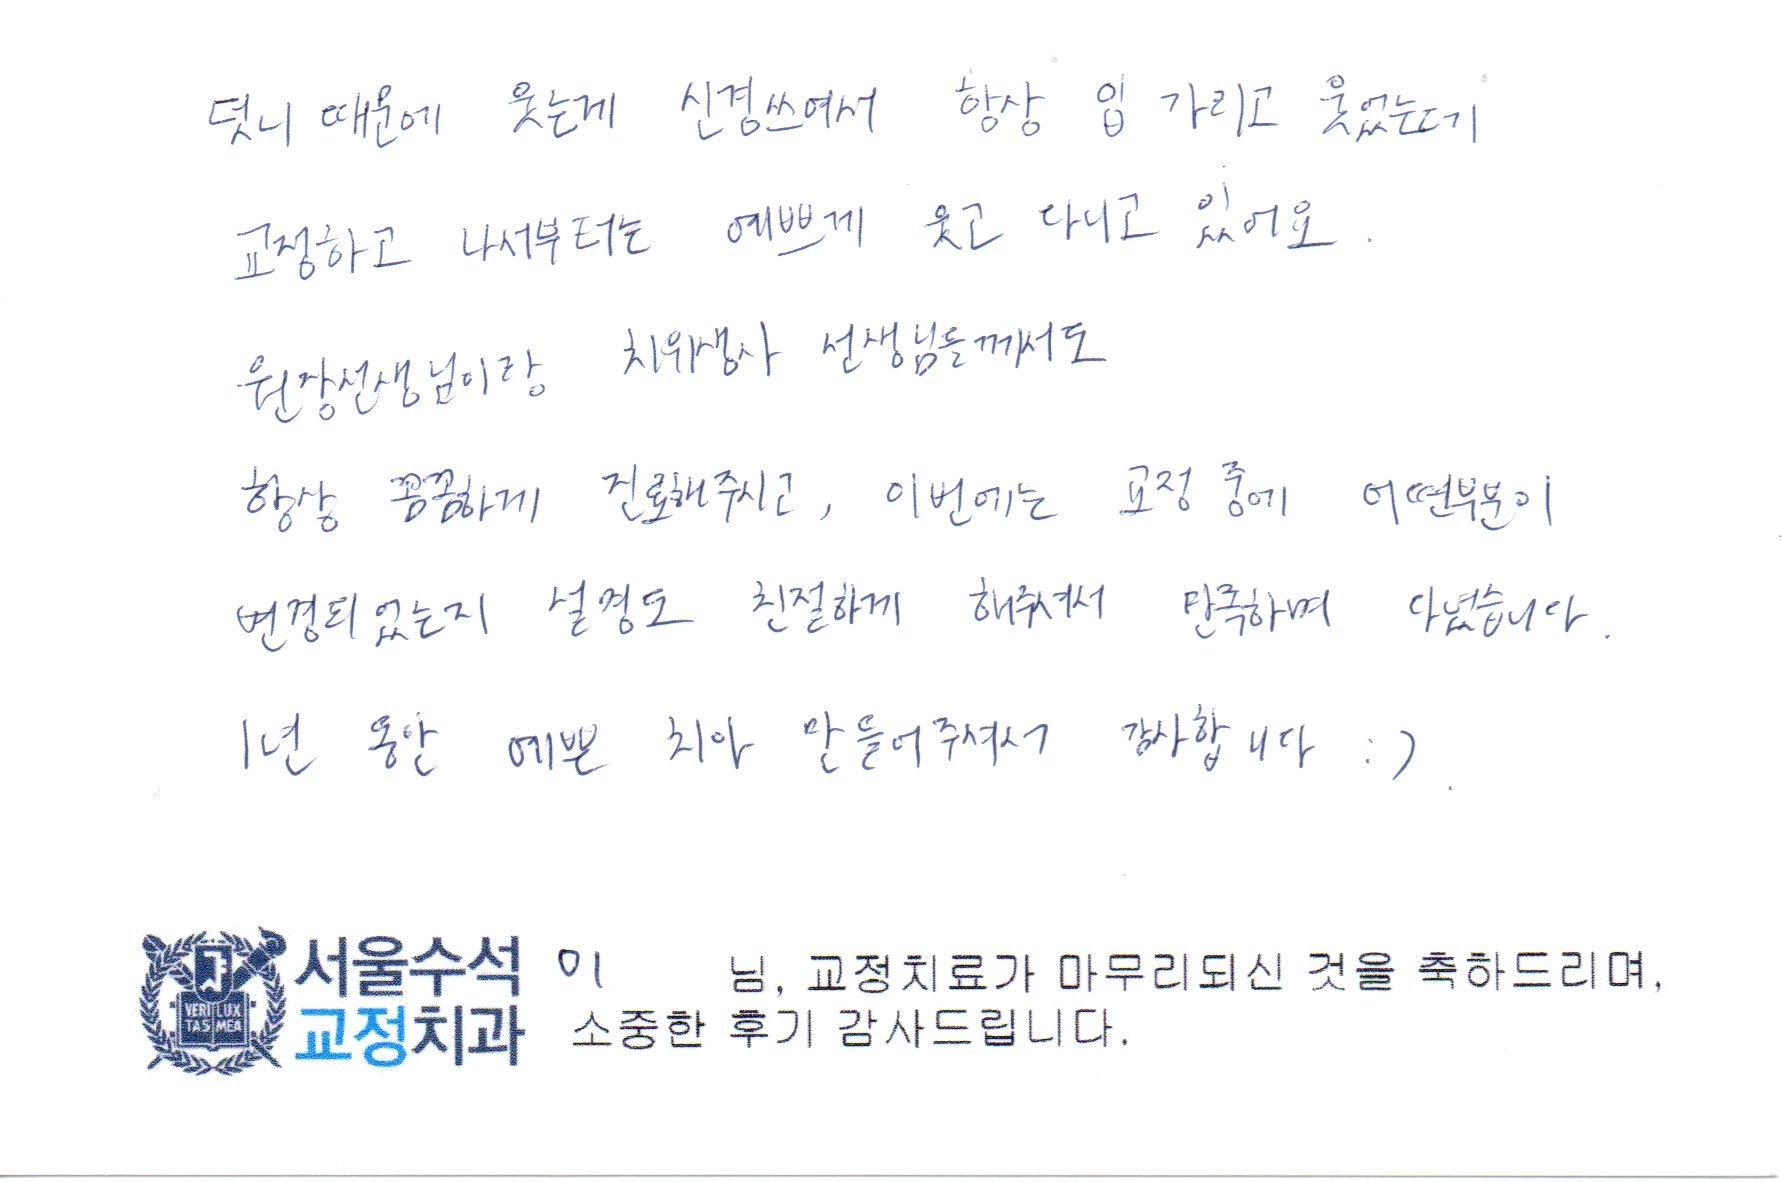 덧니 때문에 웃는게 신경쓰여서 항상 입 가리고 웃었는데
교정하고 나서부터는 예쁘게 웃고 다니고 있어요.
원장선생님이랑 치위생사 선생님들께서도
항상 꼼꼼하게 진료해주시고, 이번에는 교정 중에 어떤부분이
변경되었는지 설명도 친절하게 해주셔서 만족하며 다녔습니다.
1년 동안 예쁜 치아 만들어주셔서 감사합니다 :)
서울수석 이 님, 교정치료가 마무리되신 것을 축하드리며,
교정치과 소중한 후기 감사드립니다.
VERI LUX
TAS MEA